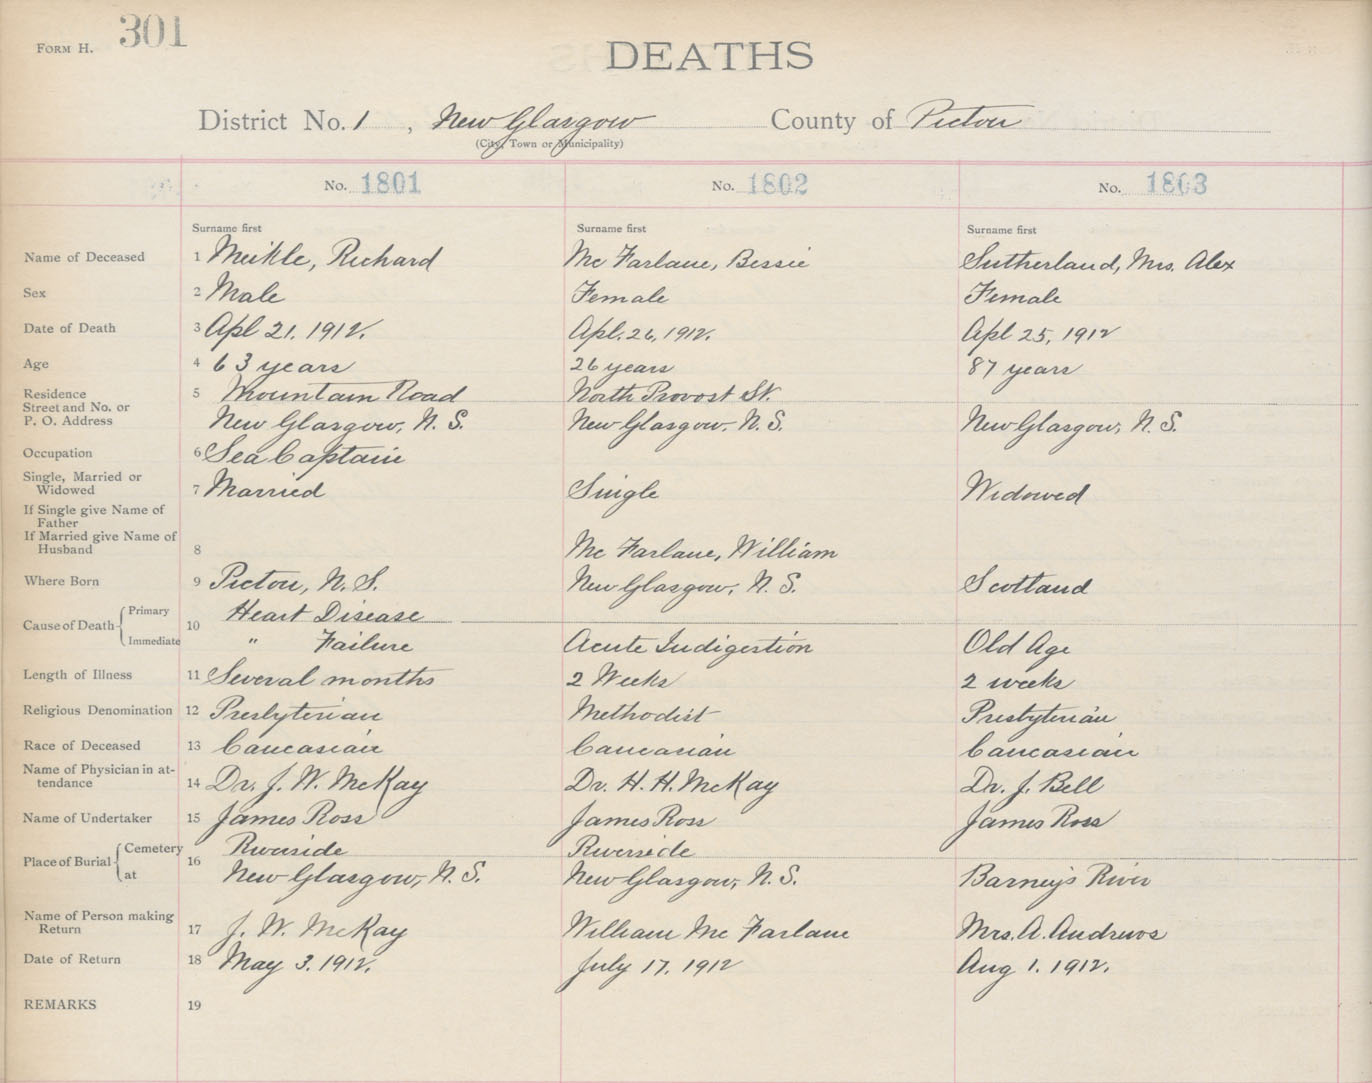 FORM H. 301
DEATHS
District No. 1, New Glasgow County of Pictou
(City, Town or Municipality)
No. 1801 No. 1802 No. 1803
Surname first Surname first Surname first
Name of Deceased 1 Meikle, Richard Mc Farlane, Bessie Sutherland, Mrs. Alex
Sex 2 Male Female Female
Date of Death 3 Apl 21. 1912. Apl. 26, 1912. Apl 25, 1912
Age 4 63 years 26 years 87 years
Residence 5 Mountain Road North Provost St.
Street and No. or
P. O. Address New Glasgow, N. S. New Glasgow. N. S. New Glasgow, N. S.
Occupation 6 Sea Captain
Single, Married or
Widowed 7 Married Single Widowed
If Single give Name of
Father
If Married give Name of
Husband 8 Mc Farlane, William
Where Born 9 Pictou, N. S. New Glasgow, N. S. Scotland
Cause of Death Primary 10 Heart Disease
Immediate " Failure Acute Indigestion Old Age
Length of Illness 11 Several months 2 Weeks 2 weeks
Religious Denomination 12 Presbyterian Methodist Presbyterian
Race of Deceased 13 Caucasian Caucasian Caucasian
Name of Physician in at-
tendance 14 Dr. J. W. McKay Dr. H. H. McKay Dr. J. Bell
Name of Undertaker 15 James Ross James Ross James Ross
Place of Burial Cemetery 16 Riverside Riverside
at New Glasgow, N. S. New Glasgow, N. S. Barney's River
Name of Person making
Return 17 J. W. McKay William Mc Farlane Mrs. A. Andrews
Date of Return 18 May 3. 1912. July 17. 1912 Aug 1. 1912.
REMARKS 19